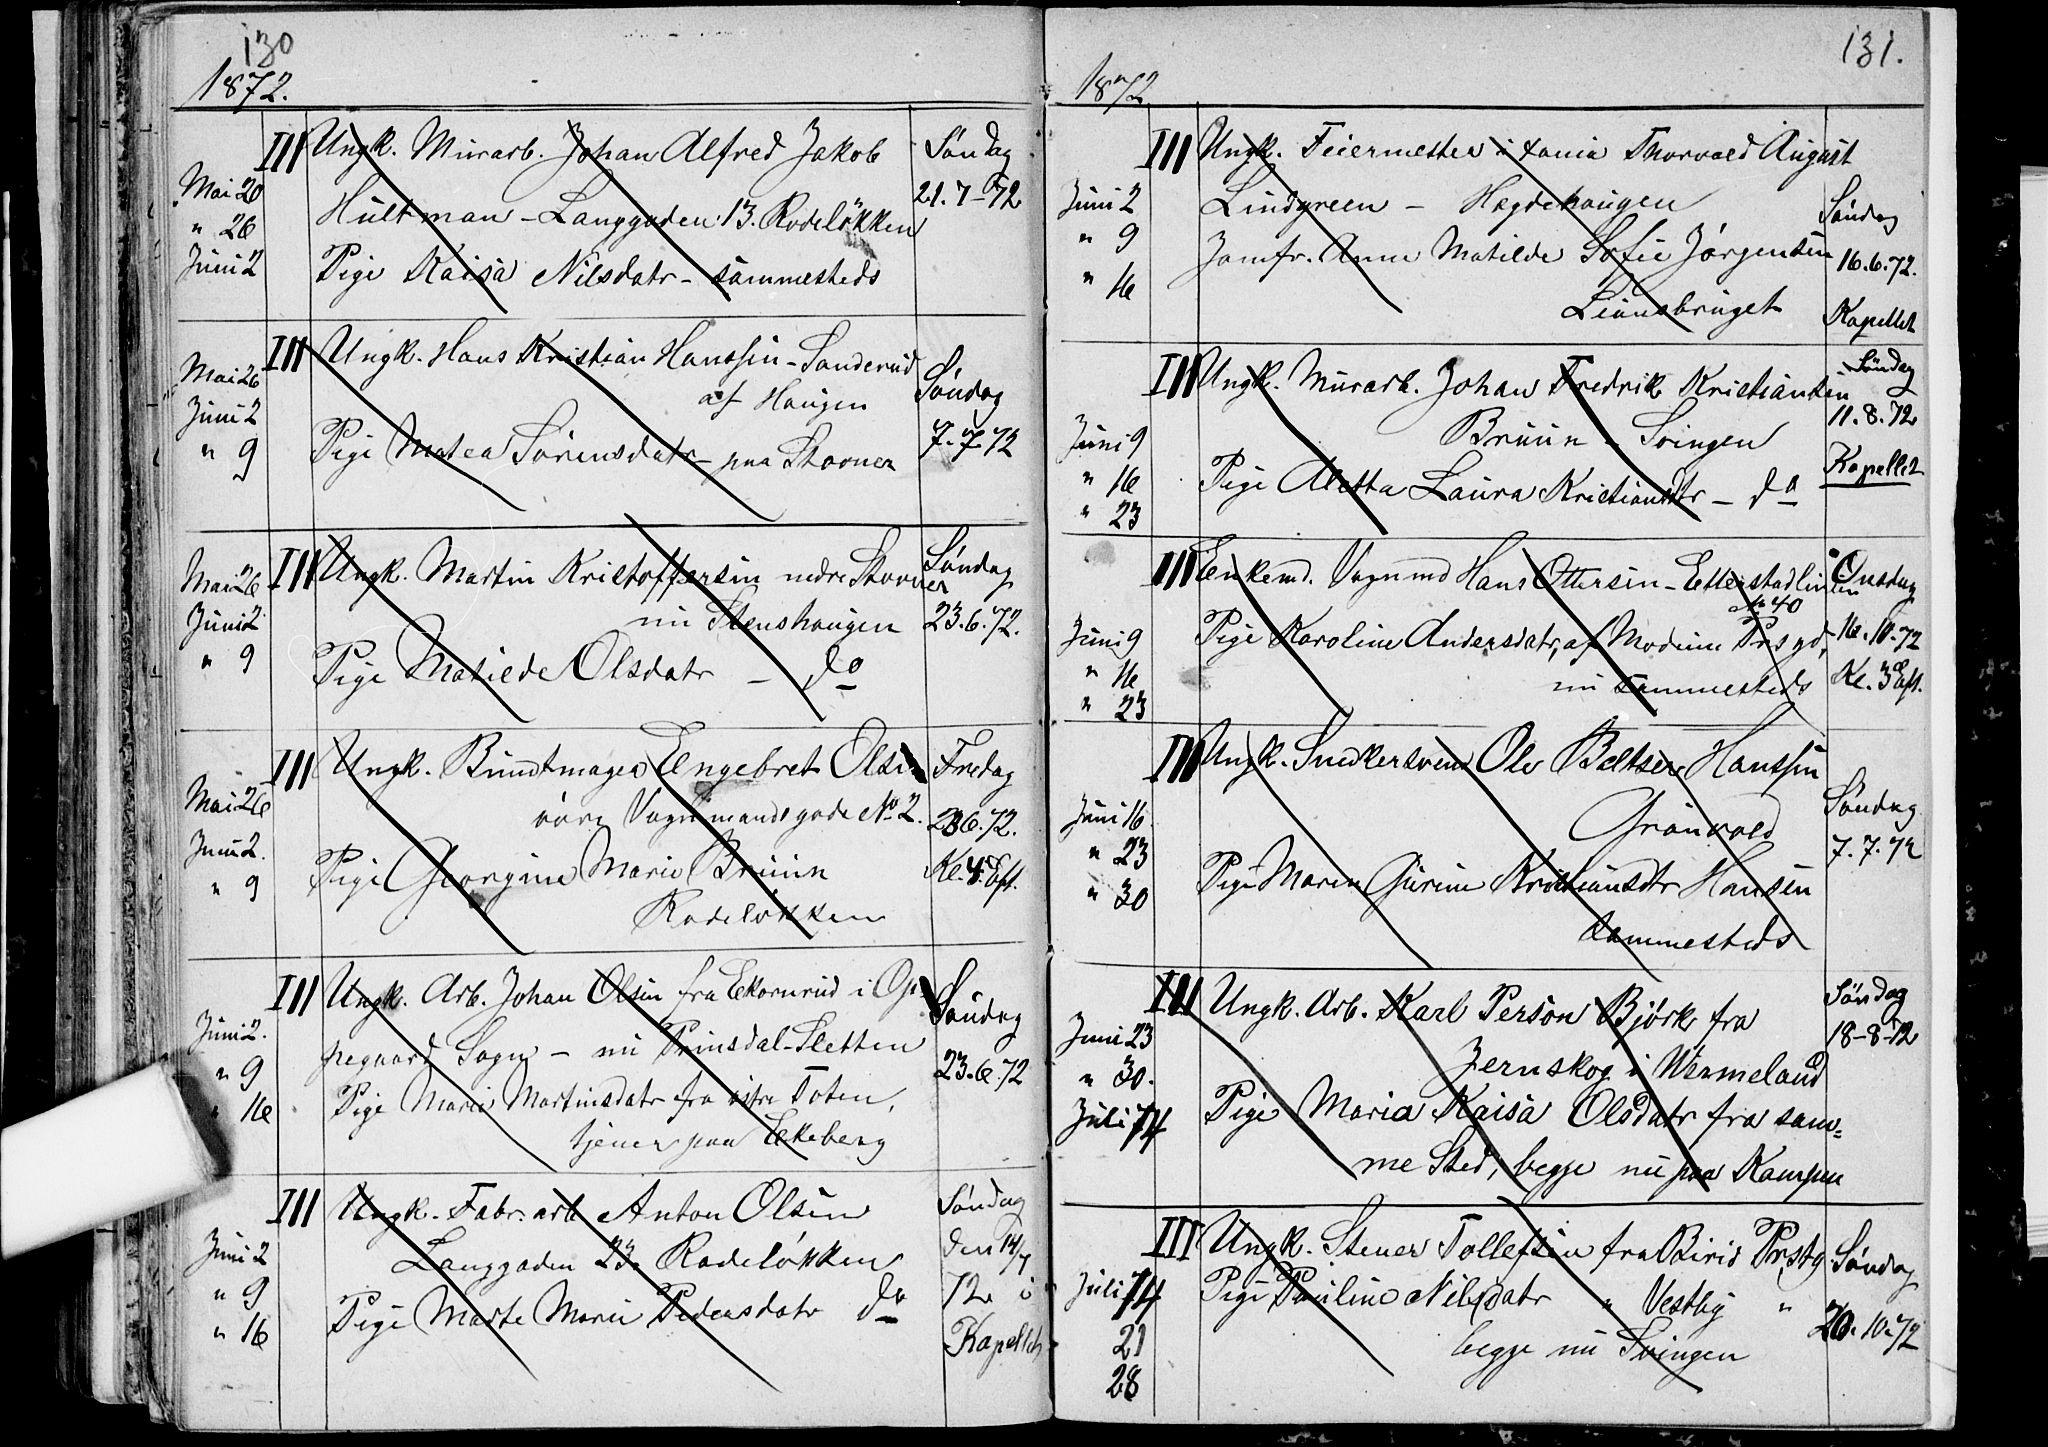 130
1872.
Mai 20
" 26
Juni 2
III
Ungk. Murarb. Johan Alfred Jakob
Hultman - Langgaden 13. Rodeløkken
Pige Kaisa Nilsdatr - sammesteds
Søndag
21.7-72
Mai 26
Juni 2
" 9
III
Ungk. Hans Kristian Hanssen - Sanderud
af Haugen
Pige Matea Sørensdatr - paa Stovner
Søndag
7.7.72
Mai 26
Juni 2
" 9
III
Ungk. Martin Kristoffersen nedre Stovner
nu Stenshaugen
Pige Matilde Olsdatr - do
Søndag
23.6.72.
Mai 26
Juni 2.
" 9
III
Ungk. Buntmager Engebret Olsen
øvre Vognmandsgade No 2.
Pige Georgine Marie Bruun
Rodeløkken
Fredag
.6.72.
Kl. 4 Eft.
Juni 2.
" 9
" 16
III
Ungk. Arb. Johan Olsen fra Ekornrud i Op-
pegaard Sogn - nu Prinsdal-Sletten
Pige Maria Martinsdatr fra østre Toten,
tjener paa Ekeberg
Søndag
23.6.72
Juni 2
" 9
" 16
III
Ungk. Fabr. arb Anton Olsen
Langgaden 23. Rodeløkken
Pige Marte Marie Pedersdatr do
Søndag
den 14/7
72 i
Kapellet
131.
1872
Juni 2
" 9
" 16
III
Ungk. Feiermester i Xania Thorvald August
Lindgreen - Hegdehaugen
Jomfr. Anne Matilde Sofie Jørgensen
Liansbruget
Søndag
16.6.72.
Kapellet
Juni 9
" 16
" 23
III
Ungk. Murarb. Johan Fredrik Kristiansen
Bruun - Svingen
Pige Aletta Laura Kristiansdtr - do
Søndag
11.8.72
Kapellet
Juni 9
" 16
" 23
III
Enkemd. Vognmd Hans Ottersen - Etterstadlinien
No 40
Pige Karoline Andersdatr, af Modum Prsgd,
nu sammesteds
Onsdag
16.10.72
Kl. 3 Eft.
Juni 16.
" 23
" 30
III
Ungk. Snedkersvend Ole Beltser Hanssen
Grønvold
Pige Maren Gurine Kristiansdtr Hansen
sammesteds
Søndag
7.7.72
Juni 23
" 30.
Juli 14
III
Ungk. Arb. Karl Person Bjørk fra
Jernskog i Wermeland
Pige Maria Kaisa Olsdatr fra sam=
me Sted, begge nu paa Kampen
Søndag
18-8-72
Juli 14
21
28
III
Ungk. Stener Tollefsen fra Birid Prstg
Pige Pauline Nilsdatr " Vestby "
begge nu Svingen
Søndag
20.10.72